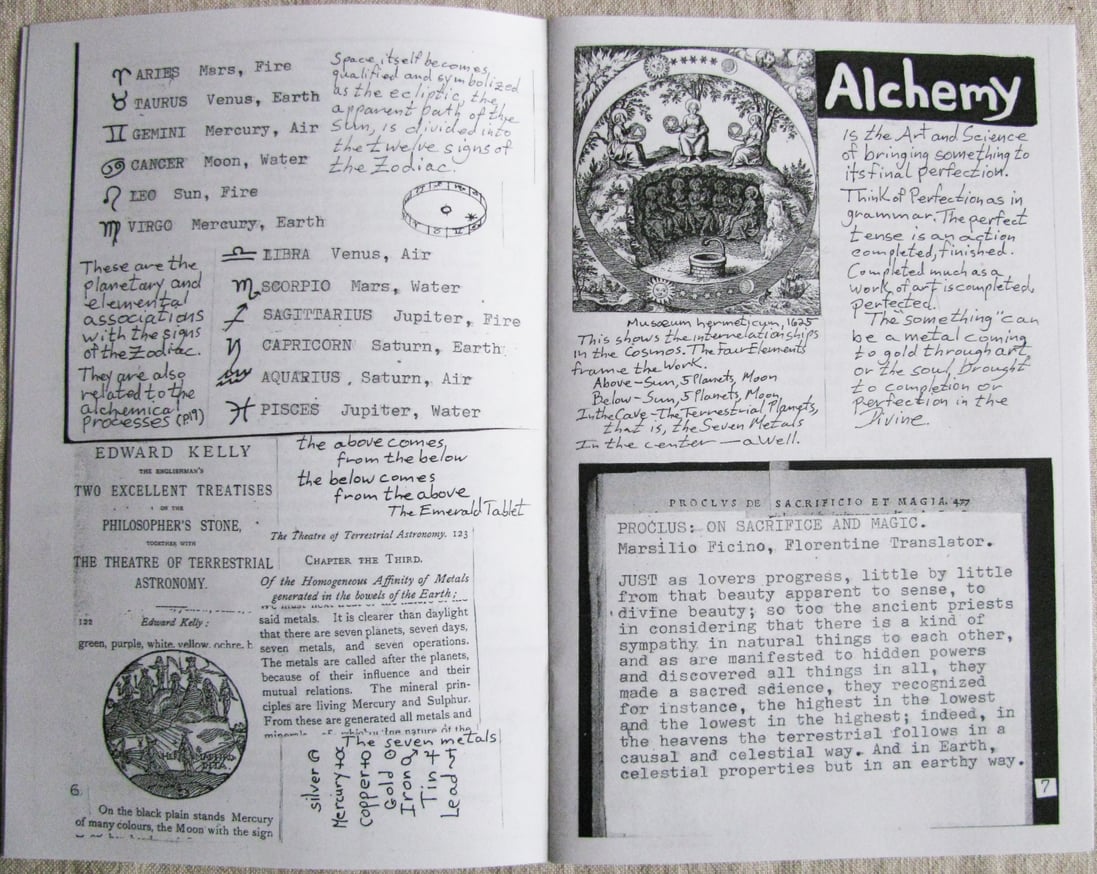 ♈ ARIES Mars, Fire
♉ TAURUS Venus, Earth
♊ GEMINI Mercury, Air
♋ CANCER Moon, Water
♌ LEO Sun, Fire
♍ VIRGO Mercury, Earth
♎ LIBRA Venus, Air
♏ SCORPIO Mars, Water
♐ SAGITTARIUS Jupiter, Fire
♑ CAPRICORN Saturn, Earth
♒ AQUARIUS, Saturn, Air
♓ PISCES Jupiter, Water
Space itself becomes
qualified and symbolized
as the ecliptic, the
apparent path of the
Sun, is divided into
the twelve signs of
the Zodiac.
These are the
planetary and
elemental
associations
with the signs
of the Zodiac.
They are also
related to the
alchemical
processes (p.19)
EDWARD KELLY
THE ENGLISHMAN'S
TWO EXCELLENT TREATISES
ON THE
PHILOSOPHER'S STONE,
TOGETHER WITH
THE THEATRE OF TERRESTRIAL
ASTRONOMY.
122 Edward Kelly:
green, purple, white, yellow, ochre, b
On the black plain stands Mercury
of many colours, the Moon with the sign
6
the above comes,
from the below
the below comes
from the above
The Emerald Tablet
The Theatre of Terrestrial Astronomy. 123
CHAPTER THE THIRD.
Of the Homogeneous Affinity of Metals
generated in the bowels of the Earth;
We must next treat of the nature of the
said metals. It is clearer than daylight
that there are seven planets, seven days,
seven metals, and seven operations.
The metals are called after the planets,
because of their influence and their
mutual relations. The mineral prin-
ciples are living Mercury and Sulphur.
From these are generated all metals and
minerals, of which the nature of the
The seven metals
silver ☾
Mercury ☿
Copper ♀
Gold ☉
Iron ♂
Tin ♃
Lead ♄
Musæum hermeticum, 1625
This shows the interrelationships
in the Cosmos. The Four Elements
frame the Work.
Above - Sun, 5 Planets, Moon
Below - Sun, 5 Planets, Moon,
In the Cave - The Terrestrial Planets,
that is, the Seven Metals
In the center — a Well.
Alchemy
is the Art and Science
of bringing something to
its final perfection.
Think of Perfection as in
grammar. The perfect
tense is an action
completed, finished.
Completed much as a
work of art is completed,
perfected.
The "something" can
be a metal coming
to gold through art
or the soul, brought
to completion or
perfection in the
Divine.
PROCLVS DE SACRIFICIO ET MAGIA. 477
PROCIUS: ON SACRIFICE AND MAGIC.
Marsilio Ficino, Florentine Translator.
JUST as lovers progress, little by little
from that beauty apparent to sense, to
divine beauty; so too the ancient priests
in considering that there is a kind of
sympathy in natural things to each other,
and as are manifested to hidden powers
and discovered all things in all, they
made a sacred science, they recognized
for instance, the highest in the lowest
and the lowest in the highest; indeed, in
the heavens the terrestrial follows in a
causal and celestial way. And in Earth,
celestial properties but in an earthy way.
7